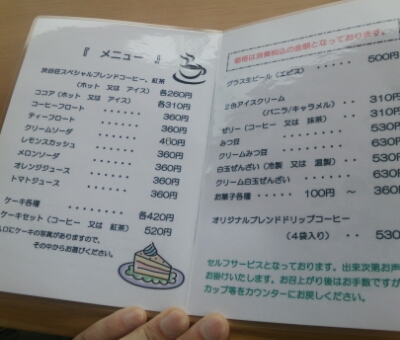 『 メニュー 』
渋谷荘スペシャルブレンドコーヒー、紅茶
(ホット 又は アイス) 各260円
ココア (ホット 又は アイス) 各310円
コーヒーフロート ・・・・・・ 360円
ティーフロート ・・・・・・ 360円
クリームソーダ ・・・・・・ 360円
レモンスカッシュ ・・・・・・ 410円
メロンソーダ ・・・・・・ 360円
オレンジジュース ・・・・・・ 360円
トマトジュース ・・・・・・ 360円
ケーキ各種 ・・・・・・・ 各420円
ケーキセット (コーヒー 又は 紅茶) 520円
入口にケーキの写真がありますので、
その中からお選びください。
価格は消費税込の金額となっております。
グラス生ビール (エビス) ・・・・ 500円
2色アイスクリーム
(バニラ/キャラメル) ・・ 310円
ゼリー (コーヒー 又は 抹茶) ・・ 310円
みつ豆 ・・・・・・・ 530円
クリームみつ豆 ・・・・・・ 630円
白玉ぜんざい (冷製 又は 温製) ・・ 530円
クリーム白玉ぜんざい ・・・・ 630円
お菓子各種 ・・・・・ 100円 ~ 360円
オリジナルブレンドドリップコーヒー
(4袋入り) ・・ 530
セルフサービスとなっております。出来次第お声
お掛けいたします。お召上がり後はお手数ですが
カップ等をカウンターにお戻しください。